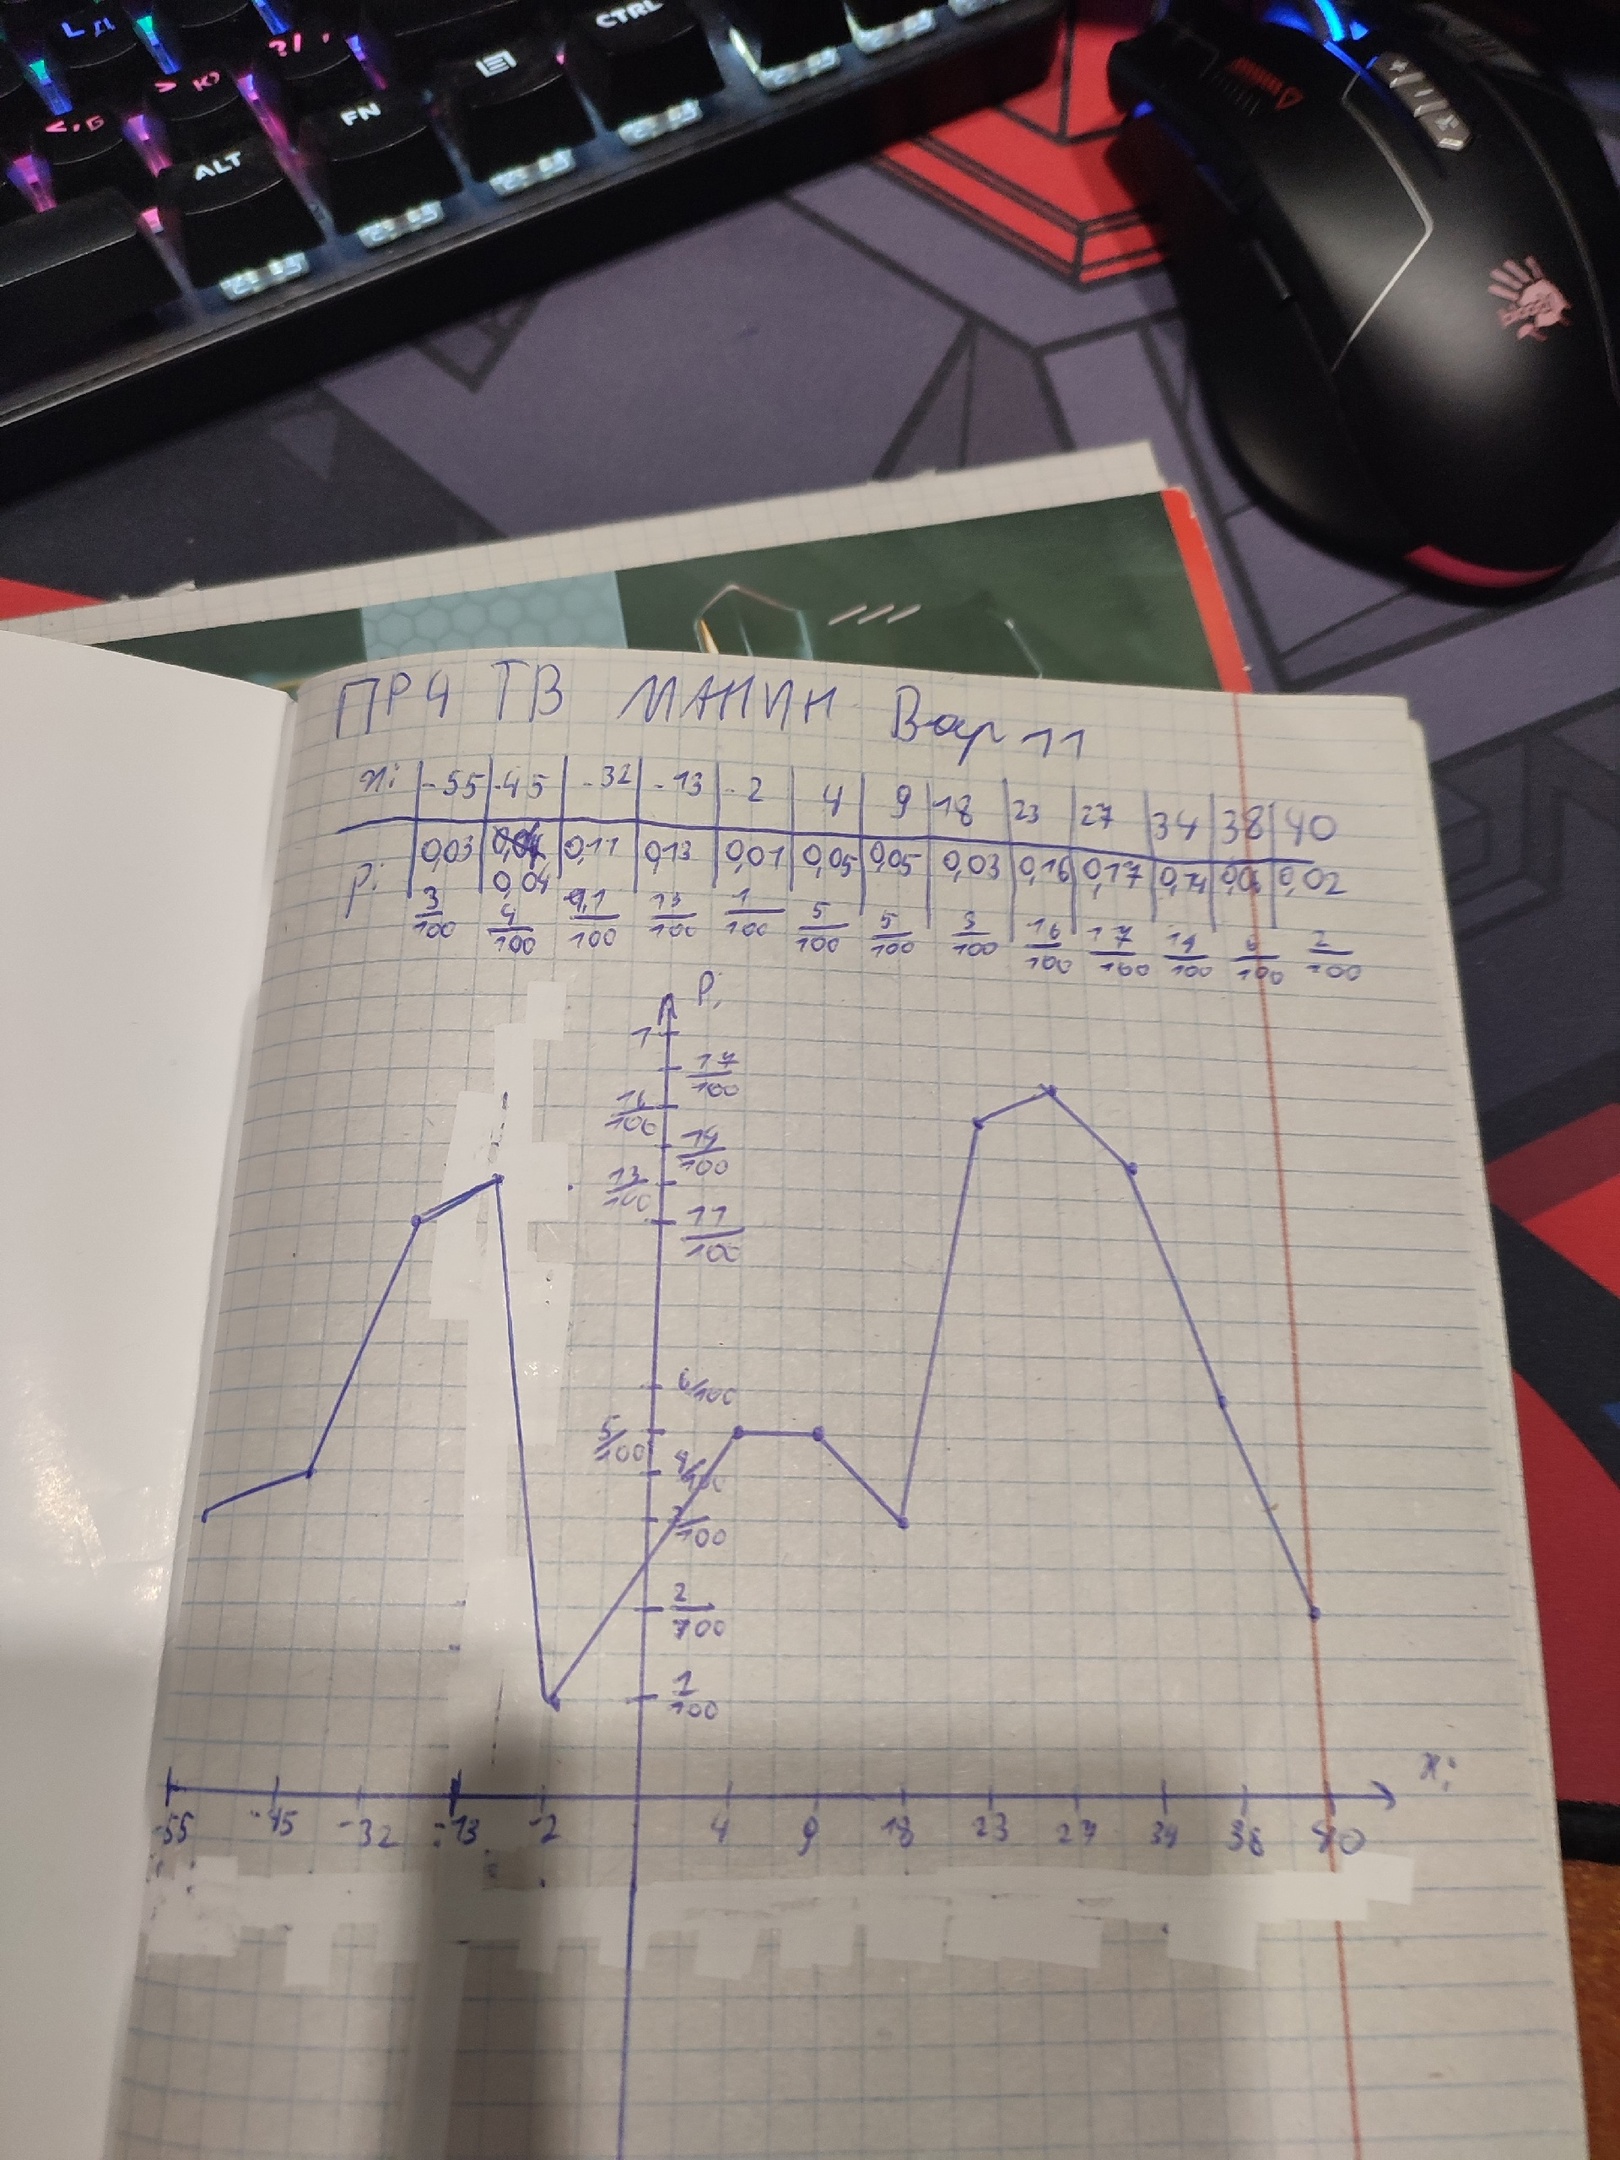 CTRL
L Д
?/ ,
> Ю
FN
<, Б
ALT
ПР4 ТВ МАНИН Вар 11
xi -55 -45 -32 -13 -2 4 9 18 23 27 34 38 40
pi 0,03 0,04 0,11 0,13 0,01 0,05 0,05 0,03 0,16 0,17 0,14 0,06 0,02
0,04
3/100 4/100 11/100 13/100 1/100 5/100 5/100 3/100 16/100 17/100 14/100 6/100 2/100
Pi
1
17/100
16/100
14/100
13/100
11/100
6/100
5/100
4/100
3/100
2/100
1/100
xi
-55 -45 -32 -13 -2 4 9 18 23 27 34 38 40